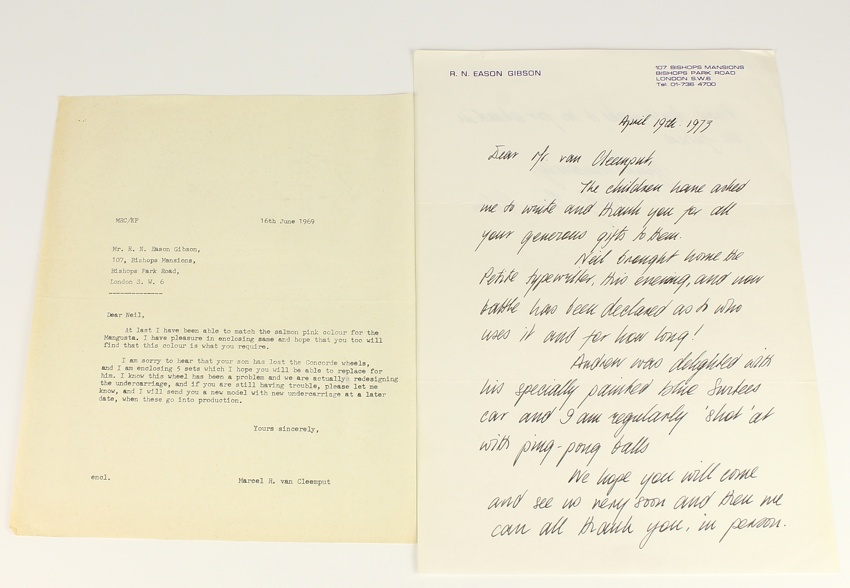 MHC/KP 16th June 1969
Mr. R. N. Eason Gibson,
107, Bishops Mansions,
Bishops Park Road,
London S. W. 6
--------------
Dear Neil,
At last I have been able to match the salmon pink colour for the
Mangusta. I have pleasure in enclosing same and hope that you too will
find that this colour is what you require.
I am sorry to hear that your son has lost the Concorde wheels,
and I am enclosing 5 sets which I hope you will be able to replace for
him. I know this wheel has been a problem and we are actually redesigning
the undercarriage, and if you are still having trouble, please let me
know, and I will send you a new model with new undercarriage at a later
date, when these go into production.
Yours sincerely,
encl. Marcel H. van Cleemput
R. N. EASON GIBSON
107 BISHOPS MANSIONS
BISHOPS PARK ROAD
LONDON S.W.6
Tel: 01-736 4700
April 19th. 1973
Dear Mr. van Cleemput,
The children have asked
me to write and thank you for all
your generous gifts to them.
Neil brought home the
Petite typewriter, this evening, and now
battle has been declared as to who
uses it and for how long!
Andrew was delighted with
his specially painted blue Surtees
car and I am regularly 'shot' at
with ping-pong balls
We hope you will come
and see us very soon and then we
can all thank you, in person.